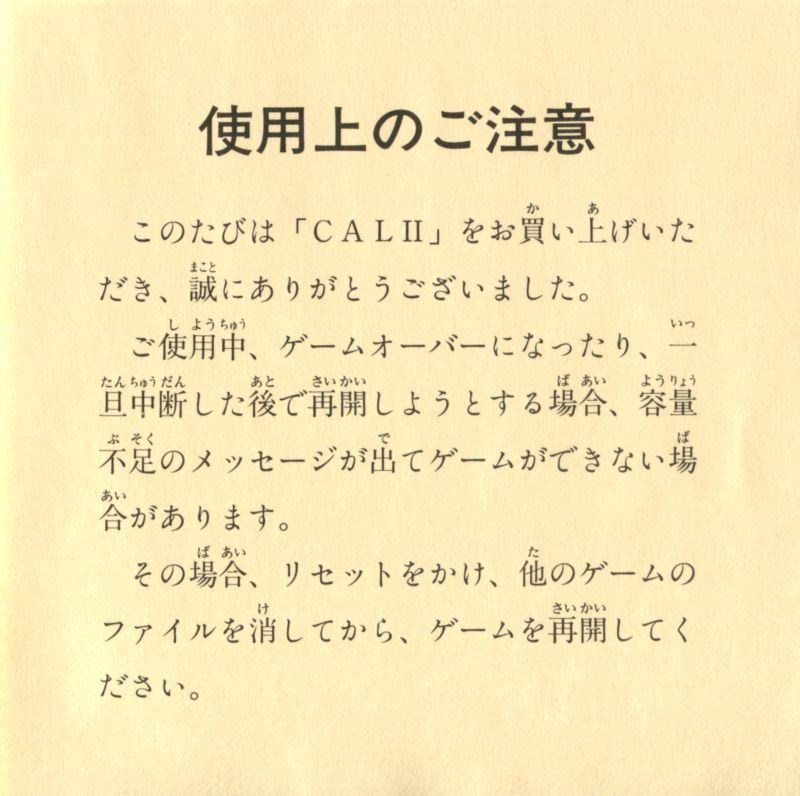 使用上のご注意
このたびは「CALII」をお買い上げいた
だき、誠にありがとうございました。
ご使用中、ゲームオーバーになったり、一
旦中断した後で再開しようとする場合、容量
不足のメッセージが出てゲームができない場
合があります。
その場合、リセットをかけ、他のゲームの
ファイルを消してから、ゲームを再開してく
ださい。